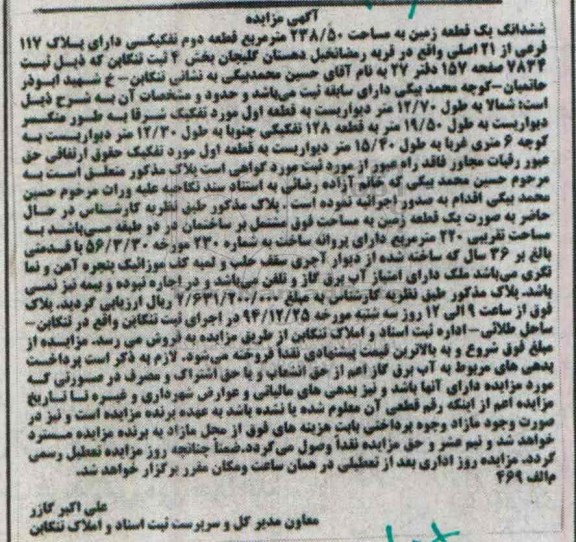 آگهی مزایده
ششدانگ یک قطعه زمین به مساحت ۲۳۸/۵۰ مترمربع قطعه دوم تفکیکی دارای پلاک ۱۱۷
فرعی از ۲۱ اصلی واقع در قریه رمضانخیل دهستان گلیجان بخش ۴ ثبت تنکابن که ذیل ثبت
۷۸۳۴ صفحه ۱۵۷ دفتر ۲۷ به نام آقای حسین محمدبیگی به نشانی تنکابن- خ شهید ابوذر
خاتمیان-کوچه محمد بیگی دارای سابقه ثبت می‌باشد و حدود و مشخصات آن به شرح ذیل
است: شمالا به طول ۱۲/۷۰ متر دیواریست به قطعه اول مورد تفکیک شرقا به طور منکسر
دیواریست به طول ۱۹/۵۰ متر به قطعه ۱۲۸ تفکیکی جنوبا به طول ۱۲/۳۰ متر دیواریست به
کوچه ۶ متری غربا به طول ۱۵/۴۰ متر دیواریست به قطعه اول مورد تفکیک حقوق ارتفاقی حق
عبور رقبات مجاور فاقد راه عبور از مورد ثبت مورد گواهی است پلاک مذکور متعلق است به
مرحوم حسین محمد بیگی که خانم آزاده رضائی به استناد سند نکاحیه علیه وراث مرحوم حسین
محمد بیگی اقدام به صدور اجرائیه نموده است . پلاک مذکور طبق نظریه کارشناس در حال
حاضر به صورت یک قطعه زمین به مساحت فوق مشتمل بر ساختمان در دو طبقه می‌باشد به
مساحت تقریبی ۲۲۰ مترمربع دارای پروانه ساخت به شماره ۲۳۰ مورخه ۵۶/۳/۳۰ با قدمتی
بالغ بر ۳۶ سال که ساخته شده از دیوار آجری سقف حلب و لمبه کف موزائیک پنجره آهن و نما
تگری می‌باشد ملک دارای امتیاز آب برق گاز و تلفن می‌باشد و در اجاره نبوده و بیمه نیز نمی
باشد. پلاک مذکور طبق نظریه کارشناس به مبلغ ۲/۶۳۱/۲۰۰/۰۰۰ ریال ارزیابی گردید. پلاک
فوق از ساعت ۹ الی ۱۲ روز سه شنبه مورخه ۹۴/۱۲/۲۵ در اجرای ثبت تنکابن واقع در تنکابن-
ساحل طلائی- اداره ثبت اسناد و املاک تنکابن از طریق مزایده به فروش می رسد. مزایده از
مبلغ فوق شروع و به بالاترین قیمت پیشنهادی نقدا فروخته می‌شود. لازم به ذکر است پرداخت
بدهی های مربوط به آب برق گاز اعم از حق انشعاب و یا حق اشتراک و مصرف در صورتی که
مورد مزایده دارای آنها باشد و نیز بدهی های مالیاتی و عوارض شهرداری و غیره تا تاریخ
مزایده اعم از اینکه رقم قطعی آن معلوم شده یا نشده باشد به عهده برنده مزایده است و نیز در
صورت وجود مازاد وجوه پرداختی بابت هزینه های فوق از محل مازاد به برنده مزایده مسترد
خواهد شد و نیم عشر و حق مزایده نقداً وصول می‌گردد.ضمناً چنانچه روز مزایده تعطیل رسمی
گردد. مزایده روز اداری بعد از تعطیلی در همان ساعت ومکان مقرر برگزار خواهد شد.
م‌الف ۴۶۹
علی اکبر گازر
معاون مدیر کل و سرپرست ثبت اسناد و املاک تنکابن